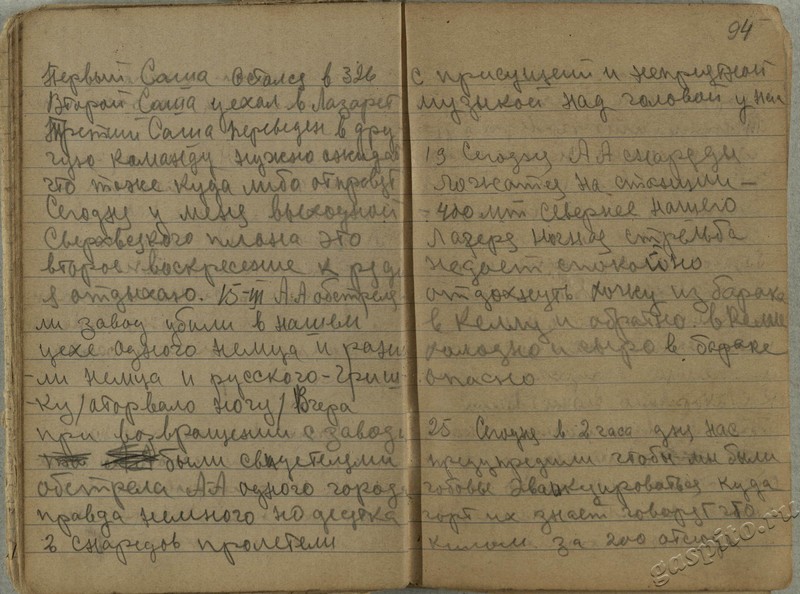 Первый Саша остался в 326
Второй Саша уехал в Лазарет
Третий Саша переведен в дру
гую команду нужно ожидат
что тоже куда либо отправут
Сегодня у меня выходной
Сверхвсякого плана это
второе воскресение к ряду
я отдыхаю. 15-III АА обстреля
ли завод убили в нашем
цехе одного немца и рани
-ли немца и русского-Гриш
-ку/оторвало ногу/Вчера
при возвращении с завода
были свидетелями
обстрела АА одного города
правда немного но десятка
2 снарядов пролетели
94
с присущей и неприятной
музыкой над головой у нас
19 Сегодня АА снаряды
ложатся на станции —
-400 мт севернее нашего
лагеря Ночная стрельба
недает спокойно
отдохнуть хожу из барака
в Келлу и обратно. в Келле
холодно и сыро в бараке
опасно
25 Сегодня в 2 часа дня нас
предупредили чтобы мы были
готовы Эвакуироваться куда
чорт их знает говорят что
килом. за 200 отсюда
gaspito.ru